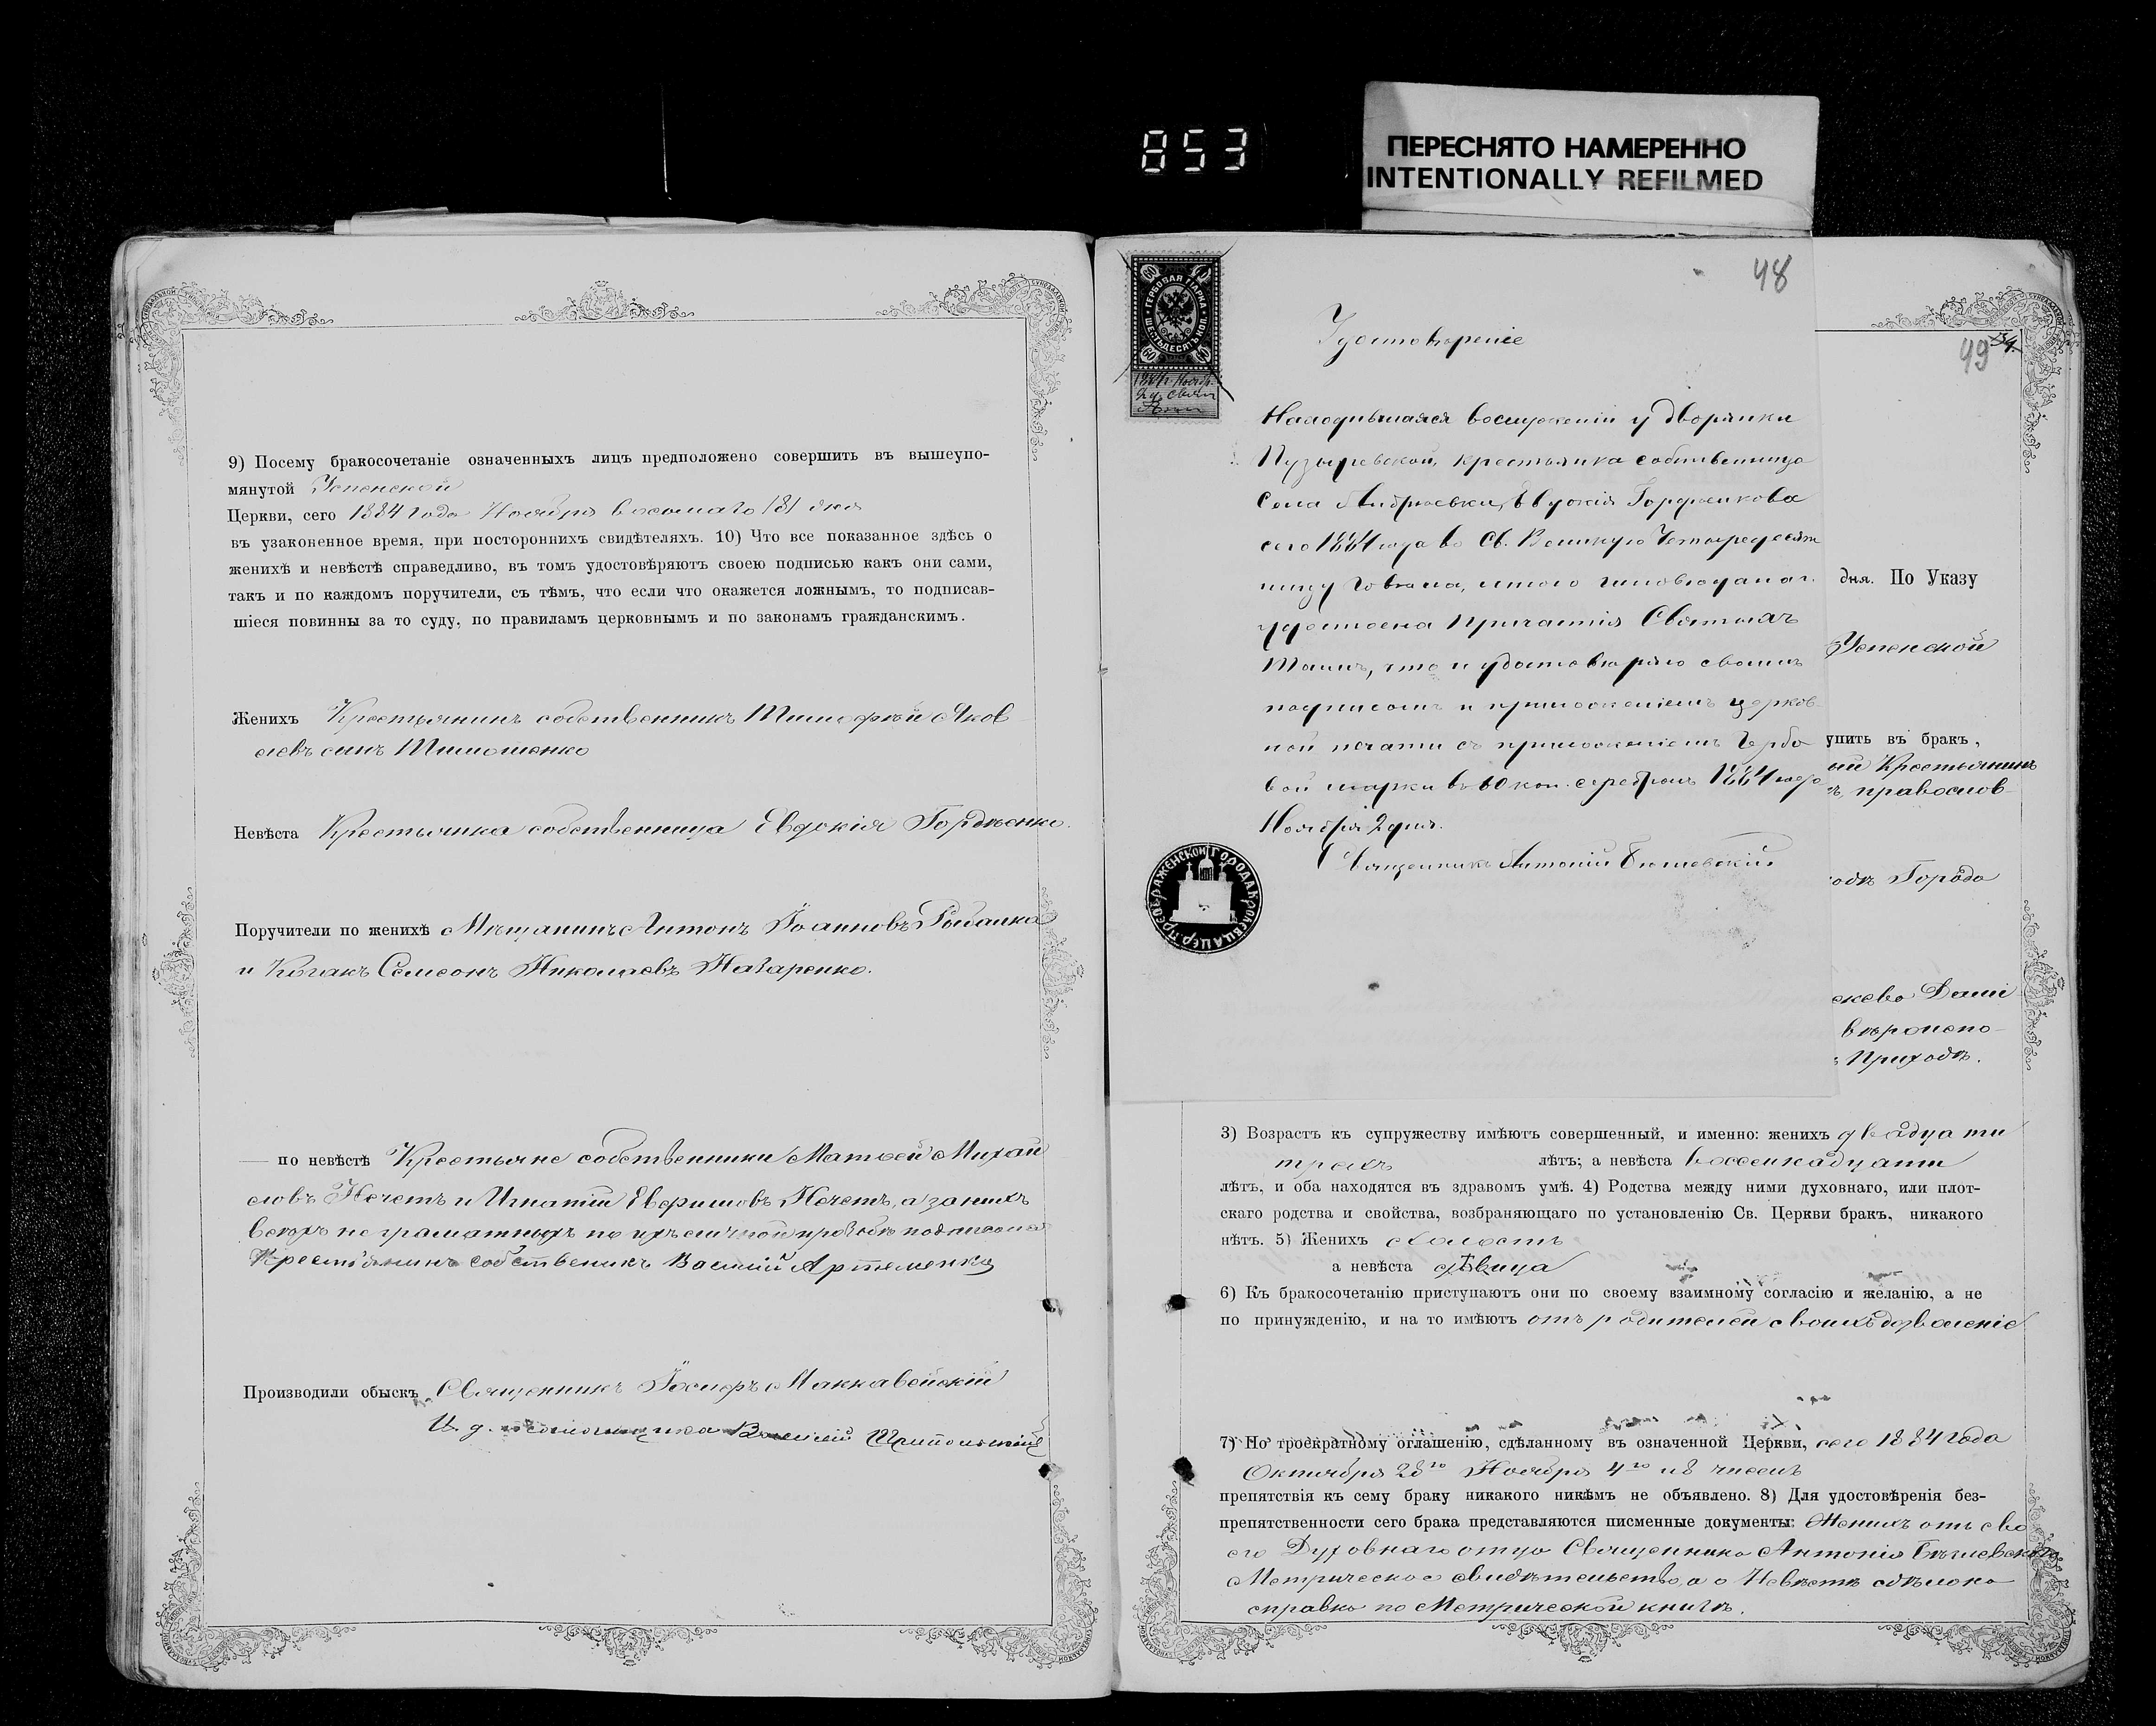 853
ПЕРЕСНЯТО НАМЕРЕННО
INTENTIONALLY REFILMED
9) Посему бракосочетаніе означенныхъ лицъ предположено совершить въ вышеупо-
мянутой Успенской
Церкви, сего 1884 года Ноября восьмаго /8/ дня
въ узаконенное время, при постороннихъ свидѣтеляхъ. 10) Что все показанное здѣсь о
женихѣ и невѣстѣ справедливо, въ томъ удостовѣряютъ своею подписью какъ они сами,
такъ и по каждомъ поручители, съ тѣмъ, что если что окажется ложнымъ, то подписав-
шіеся повинны за то суду, по правиламъ церковнымъ и по законамъ гражданскимъ.
Женихъ Крестьянинъ собственникъ Тимофей Яков
левъ сынъ Тимошенко
Невѣста Крестьянка собственница Евдокія Гордѣенко.
Поручители по женихѣ Мѣщанинъ Антонъ Іоанновъ Рыбалка
и Козакъ Семеонъ Николаевъ Назаренко.
— по невѣстѣ Крестьяне собственники Матвей Михай
ловъ Нечетъ и Игнатій Евфимовъ Нечетъ, а за нихъ
всехъ неграмотныхъ по ихъ личной прозьбѣ подписался
Крестьянинъ собственикъ Василий Артеменко
Производили обыскъ Священникъ Іосифъ Маккавейскій
И. д. псаломщика Василій
48
ГЕРБОВАЯ МАРКА
ШЕСТЬДЕСЯТЪ КОП.
60 60
60 60
Удостовереніе
Находившаяся вослужении у дворянки
Пузыревской, крестьянка собственница
села Андреевки, Евдокія Гордѣенкова
сего 1884 года во Св. Великую Четыредесят
ницу говела,
удостоена Причастія Святыхъ
Таинъ, что и удостоверяю своимъ
подписомъ и приложеніемъ церков-
ной печати съ приложеніемъ Гербо
вой марки въ 60 коп. серебромъ 1884 года
Ноября 2 дня.
Священникъ Антоній
49
дня. По Указу
Успенской
упить въ бракъ,
Крестьянинъ
православ-
Города
Дани
вѣроиспо-
Приходѣ.
3) Возрастъ къ супружеству имѣютъ совершенный, и именно: женихъ двадцати
трехъ лѣтъ; а невѣста восемнадцати
лѣтъ, и оба находятся въ здравомъ умѣ. 4) Родства между ними духовнаго, или плот-
скаго родства и свойства, возбраняющаго по установленію Св. Церкви бракъ, никакого
нѣтъ. 5) Женихъ холостъ
а невѣста дѣвица
6) Къ бракосочетанію приступаютъ они по своему взаимному согласію и желанію, а не
по принужденію, и на то имѣютъ отъ родителей своихъ дозволеніе
7) По троекратному оглашенію, сдѣланному въ означенной Церкви, сего 1884 года
Октября 28го Ноября 4го и 8 чиселъ
препятствія къ сему браку никакого никѣмъ не объявлено. 8) Для удостовѣренія без-
препятственности сего брака представляются писменные документы: Женихъ отъ сво
его Духовнаго отца Священника Антонія
Метрическое свидѣтельство, а о Невѣстѣ сдѣлана
справка по Метрической книгѣ.